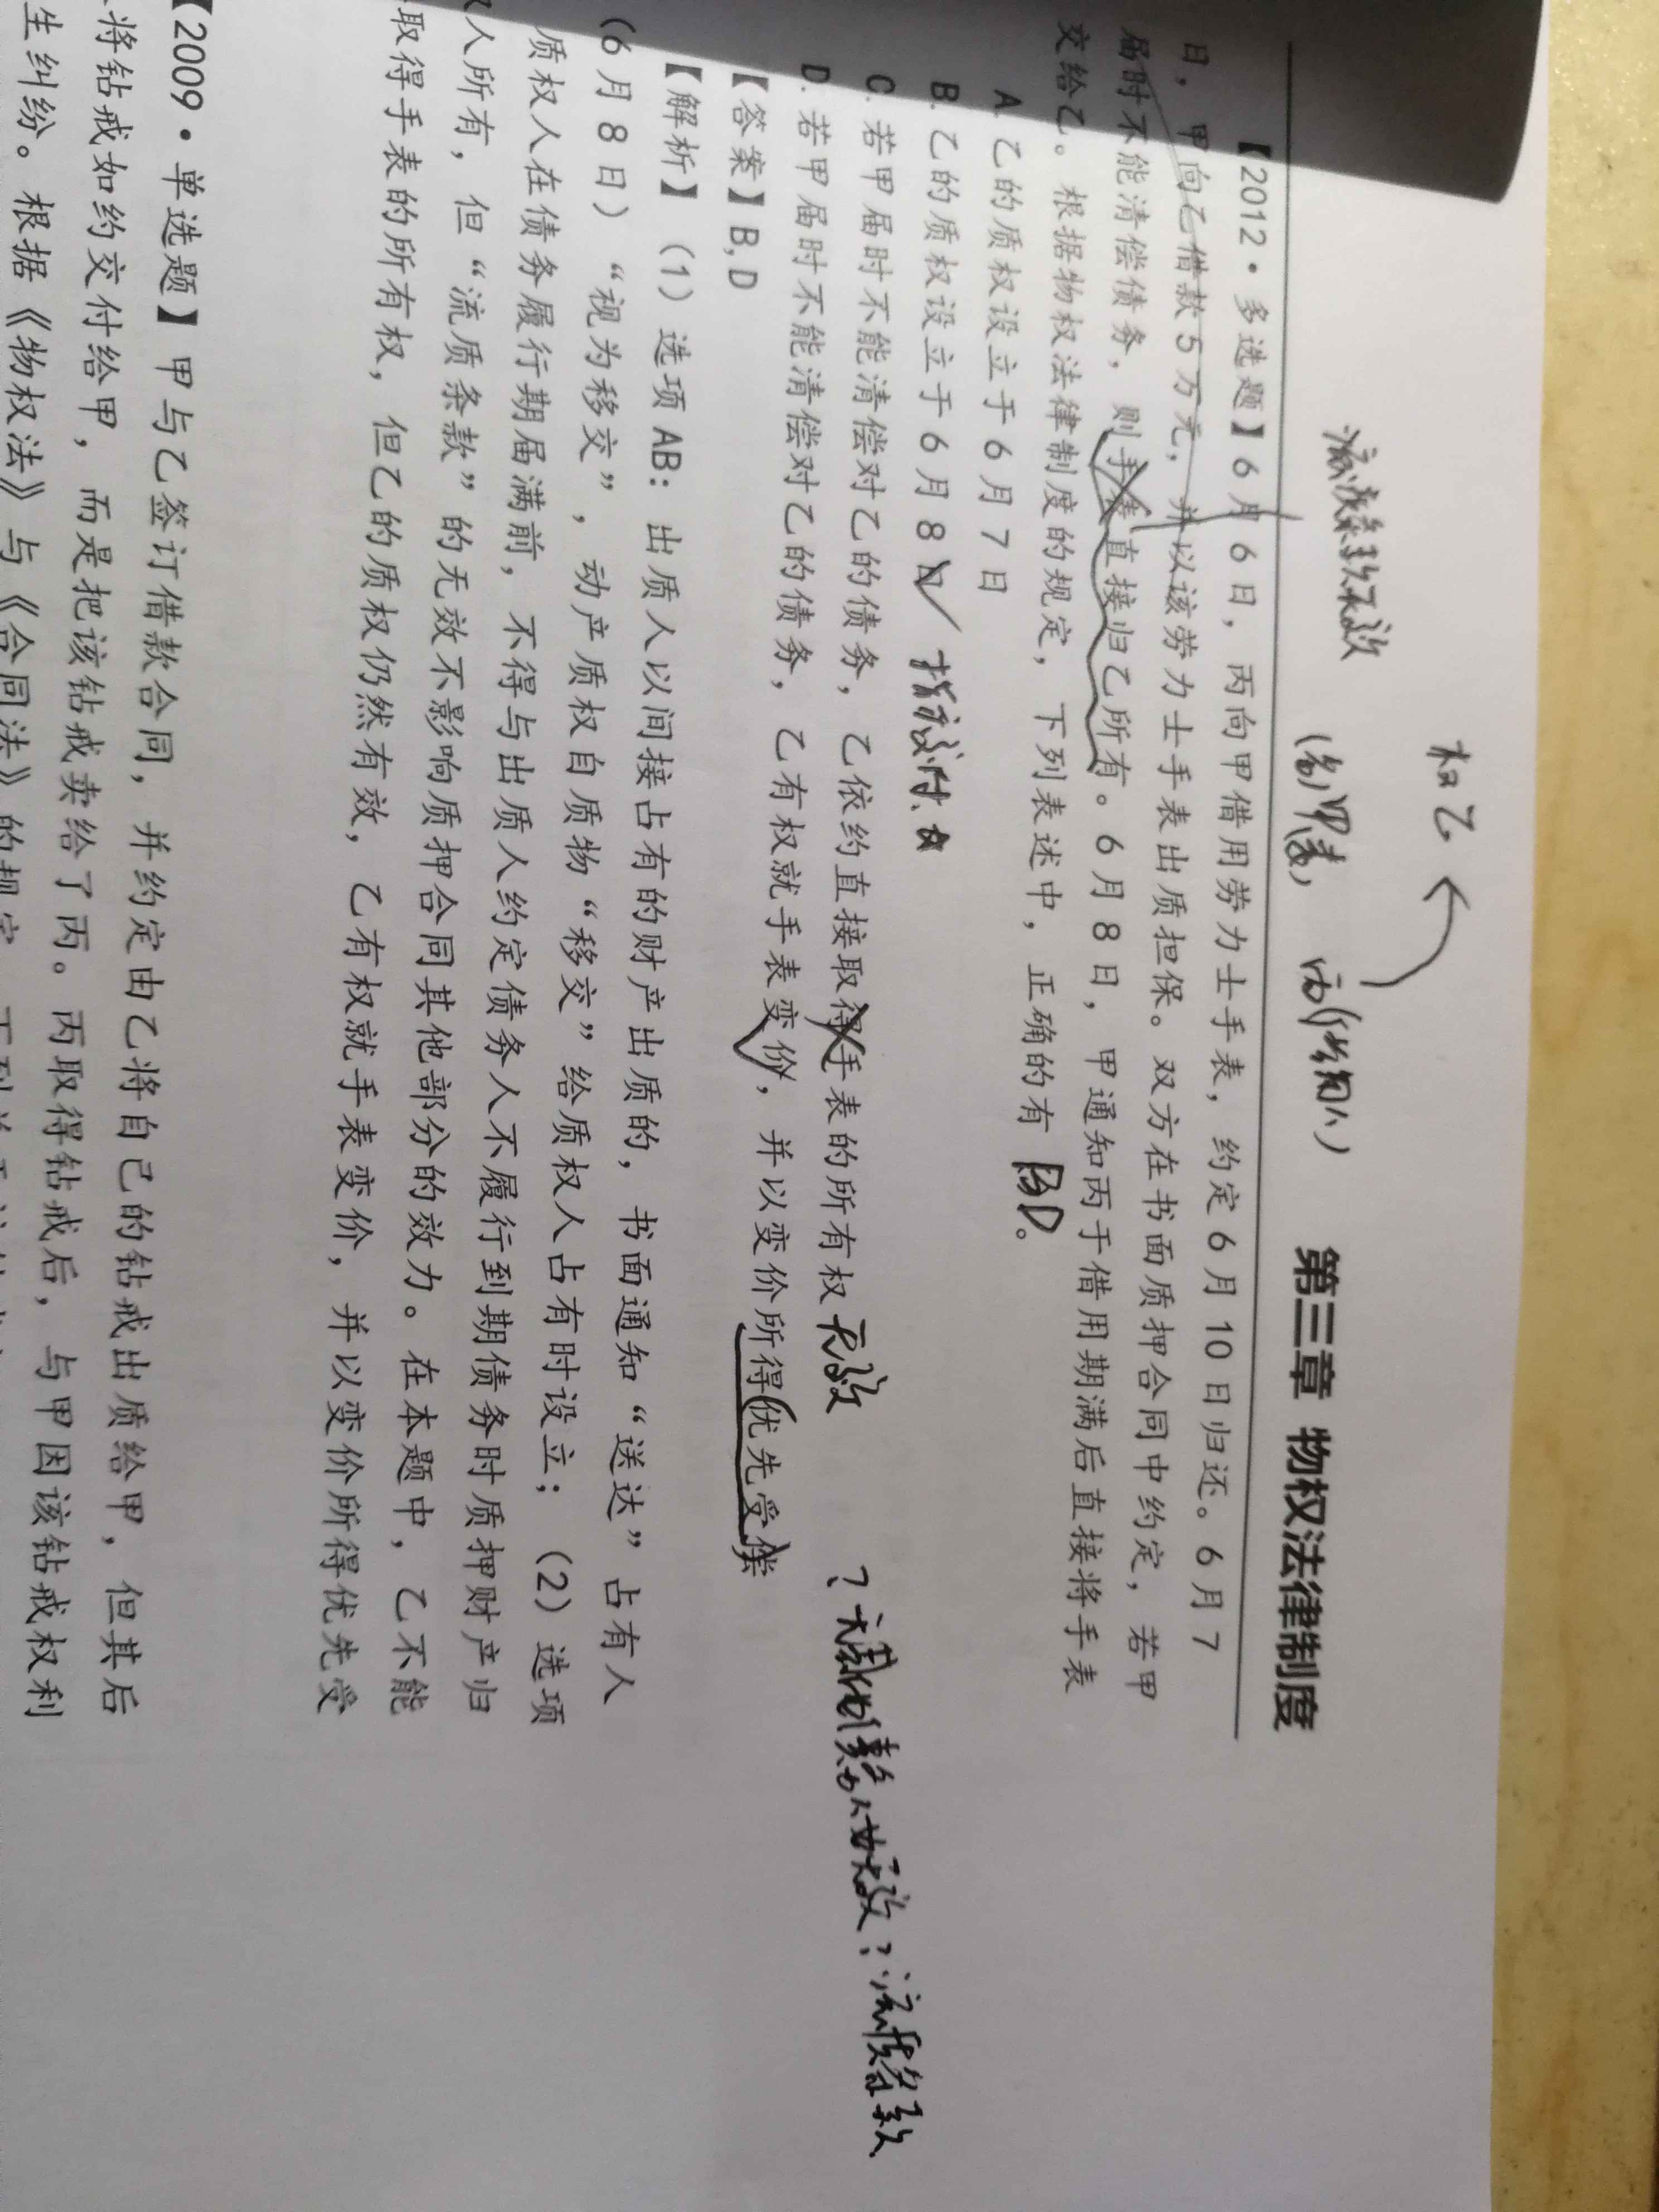 权乙
流质条款无效
第三章 物权法律制度
【2012·多选题】6月6日，丙向甲借用劳力士手表，约定6月10日归还。6月7
日，甲向乙借款5万元，并以该劳力士手表出质担保。双方在书面质押合同中约定，若甲
届时不能清偿债务，则手表直接归乙所有。6月8日，甲通知丙于借用期满后直接将手表
交给乙。根据物权法律制度的规定，下列表述中，正确的有 BD。
A.乙的质权设立于6月7日
B.乙的质权设立于6月8日 指示交付
C.若甲届时不能清偿对乙的债务，乙依约直接取得手表的所有权 无效
D.若甲届时不能清偿对乙的债务，乙有权就手表变价，并以变价所得优先受偿
流质条款
【答案】B,D
【解析】（1）选项AB：出质人以间接占有的财产出质的，书面通知“送达”占有人
（6月8日）“视为移交”，动产质权自质物“移交”给质权人占有时设立；（2）选项
质权人在债务履行期届满前，不得与出质人约定债务人不履行到期债务时质押财产归
人所有，但“流质条款”的无效不影响质押合同其他部分的效力。在本题中，乙不能
取得手表的所有权，但乙的质权仍然有效，乙有权就手表变价，并以变价所得优先受
【2009·单选题】甲与乙签订借款合同，并约定由乙将自己的钻戒出质给甲，但其后
将钻戒如约交付给甲，而是把该钻戒卖给了丙。丙取得钻戒后，与甲因该钻戒权利
生纠纷。根据《物权法》与《合同法》的规定